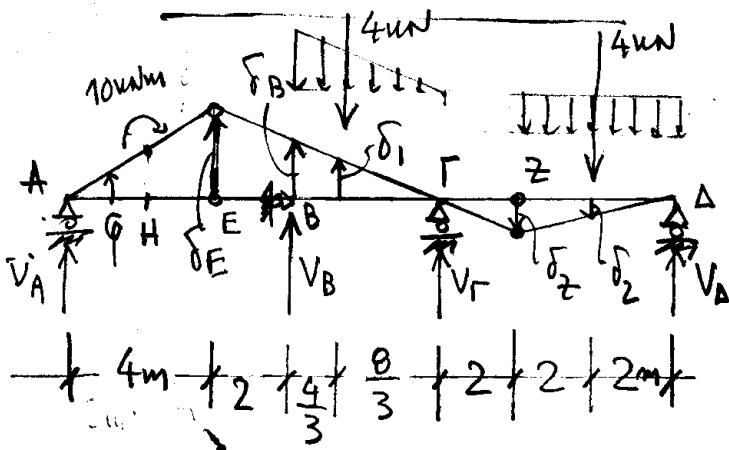 4kN
4kN
10kNm
δB
δ1
A
Γ
Z
Δ
H
E
B
δE
δZ
δ2
VA
VB
VΓ
VΔ
4m 2 4/3 8/3 2 2 2m